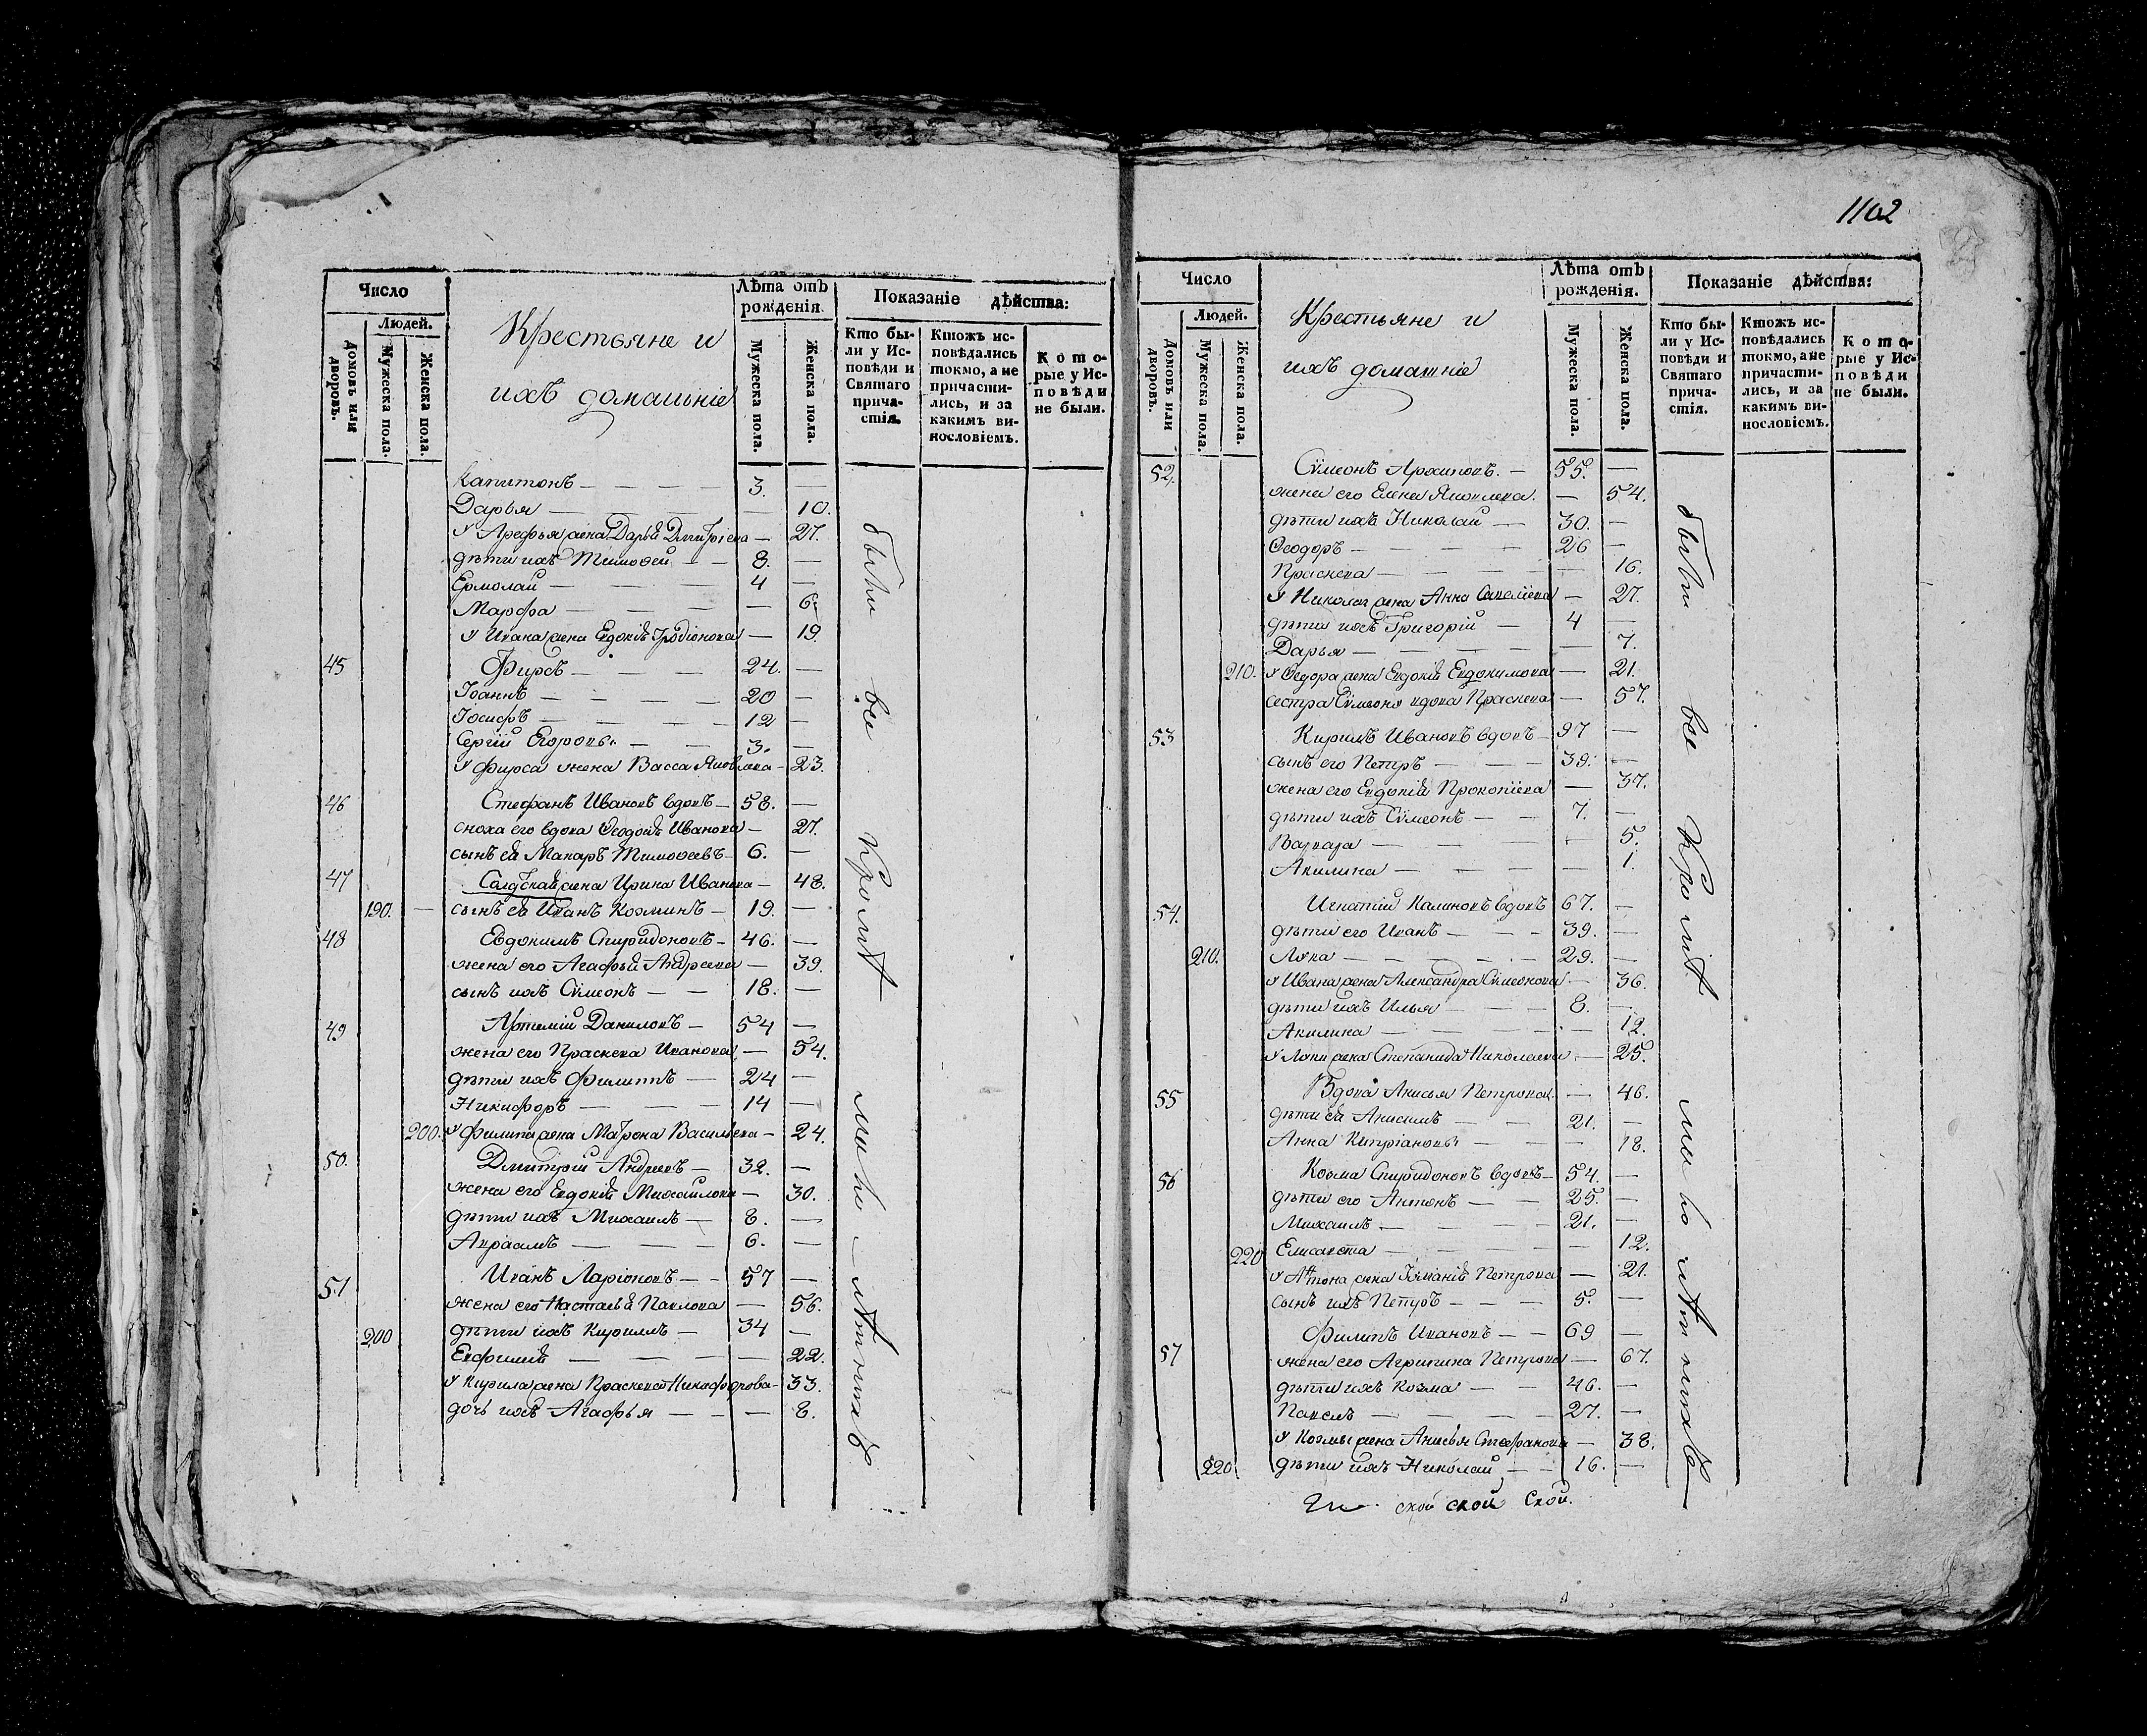 1102
Число
Людей.
Домовъ или дворовъ.
Мужеска пола.
Женска пола.
Крестьяне и
ихъ домашніе
Лѣта отъ рожденія.
Мужеска пола.
Женска пола.
Показаніе дѣйства:
Кто бы-
ли у Ис-
повѣди и
Святаго
прича-
стія.
Ктожъ ис-
повѣдались
токмо, а не
причасти-
лись, и за
какимъ ви-
нословіемъ.
Кото-
рые у Ис-
повѣди
не были.
Капитонъ — 3. —
Дарья — — 10.
У Арефья жена Дарья Дмитріева — 27.
дѣти ихъ Тимофей — 8. —
Ермолай — 4 —
Марфа — — 6.
У Ивана жена Евдокія Іродіонова — 19.
45 Фирсъ — 24. —
Іоаннъ — 20 —
Іосифъ — 12 —
Сергій Егоровы — 3. —
У Фирса жена Васса Яковлева — 23.
46 Стефанъ Ивановъ вдовъ — 58. —
сноха его вдова Ѳеодосія Иванова — 27.
сынъ ея Макаръ Тимоѳеевъ — 6. —
47 Солдатская жена Ирина Иванова — 48.
190. — сынъ ея Иванъ Козминъ — 19. —
48 Евдокимъ Спиридоновъ — 46. —
жена его Агафья Андреева — 39.
сынъ ихъ Сѵмеонъ — 18. —
49 Артемій Даниловъ — 54 —
жена его Праскева Иванова — 54.
дѣти ихъ Филиппъ — 24 —
Никифоръ — 14 —
200. У Филипа жена Матрона Васильева — 24.
50. Дмитрій Андреевъ — 32. —
жена его Евдокія Михайлова — 30.
дѣти ихъ Михаилъ — 8. —
Авраамъ — 6. —
51 Иванъ Ларіоновъ — 57 —
жена его Настасья Павлова — 56.
200 дѣти ихъ Кириллъ — 34 —
Евфимія — — 22.
У Кирила жена Праскева Никифорова — 33.
дочь ихъ Агафья — — 8.
были все кромѣ
Число
Людей.
Домовъ или дворовъ.
Мужеска пола.
Женска пола.
Крестьяне и
ихъ домашніе
Лѣта отъ рожденія.
Мужеска пола.
Женска пола.
Показаніе дѣйства:
Кто бы-
ли у Ис-
повѣди и
Святаго
прича-
стія.
Ктожъ ис-
повѣдались
токмо, а не
причасти-
лись, и за
какимъ ви-
нословіемъ.
Кото-
рые у Ис-
повѣди
не были.
52. Сѵмеонъ Архиповъ. — 55. —
жена его Елена Яковлева. — 54.
дѣти ихъ Николай — 30. —
Ѳеодоръ — 26 —
Праскева — — 16.
У Николая жена Анна Савеліева — 27.
дѣти ихъ Григорій — 4 —
Дарья — — 7.
210. У Ѳедора жена Евдокія Евдокимова — 21.
сестра Сѵмеона вдова Праскева — 57.
53 Кирилъ Ивановъ вдовъ — 97 —
сынъ его Петръ — 39. —
жена его Евдокія Прокопіева — 37.
дѣти ихъ Сѵмеонъ — 7. —
Варвара — — 5.
Акилина — — 1.
54. Игнатій Калиновъ вдовъ 67. —
дѣти его Иванъ — 39. —
210. Лука — 29. —
У Ивана жена Александра Сѵмеонова — 36.
дѣти ихъ Илья — 8. —
Акилина — — 12.
У Луки жена Степанида Николаева — 25.
55 Вдова Анисья Петрова — 46.
дѣти ея Анисимъ — 21. —
Анна Кипріановы — — 18.
56 Козма Спиридоновъ вдовъ — 54. —
дѣти его Антонъ — 25. —
Михаилъ — 21. —
220 Елисавета — — 12.
У Антона жена Іулианія Петрова — 21.
сынъ ихъ Петръ — 5. —
57 Филипъ Ивановъ — 69 —
жена его Агрипина Петрова — 67.
дѣти ихъ Козма — 46. —
Павелъ — 27. —
У Козмы жена Анисья Стефанова — 38.
220. дѣти ихъ Николай — 16. —
были все кромѣ
ской ской Ской.